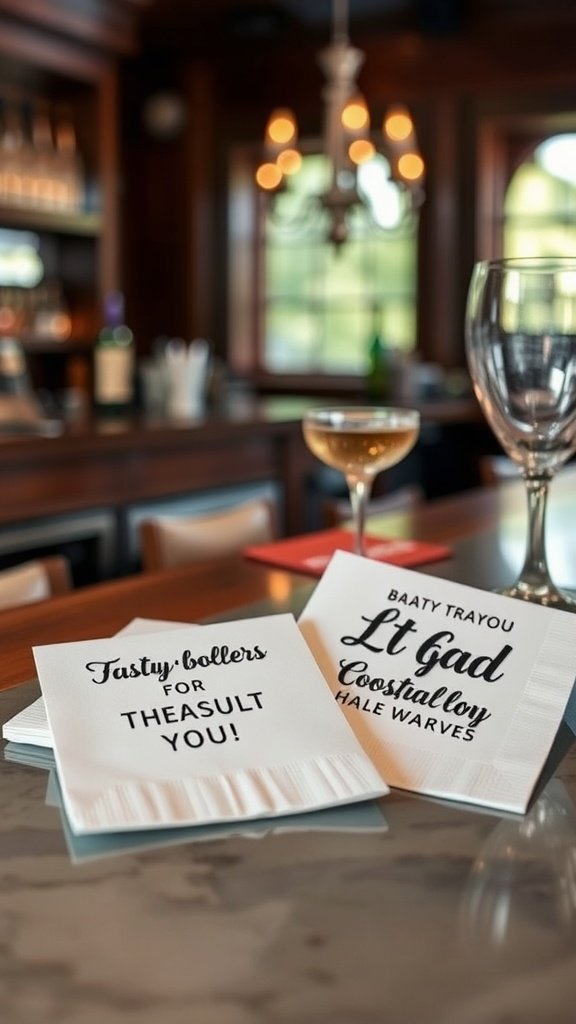 Tasty·bollers
FOR
THEASULT
YOU!
BAATY TRAYOU
Lt Gad
Coostialloy
HALE WARVES